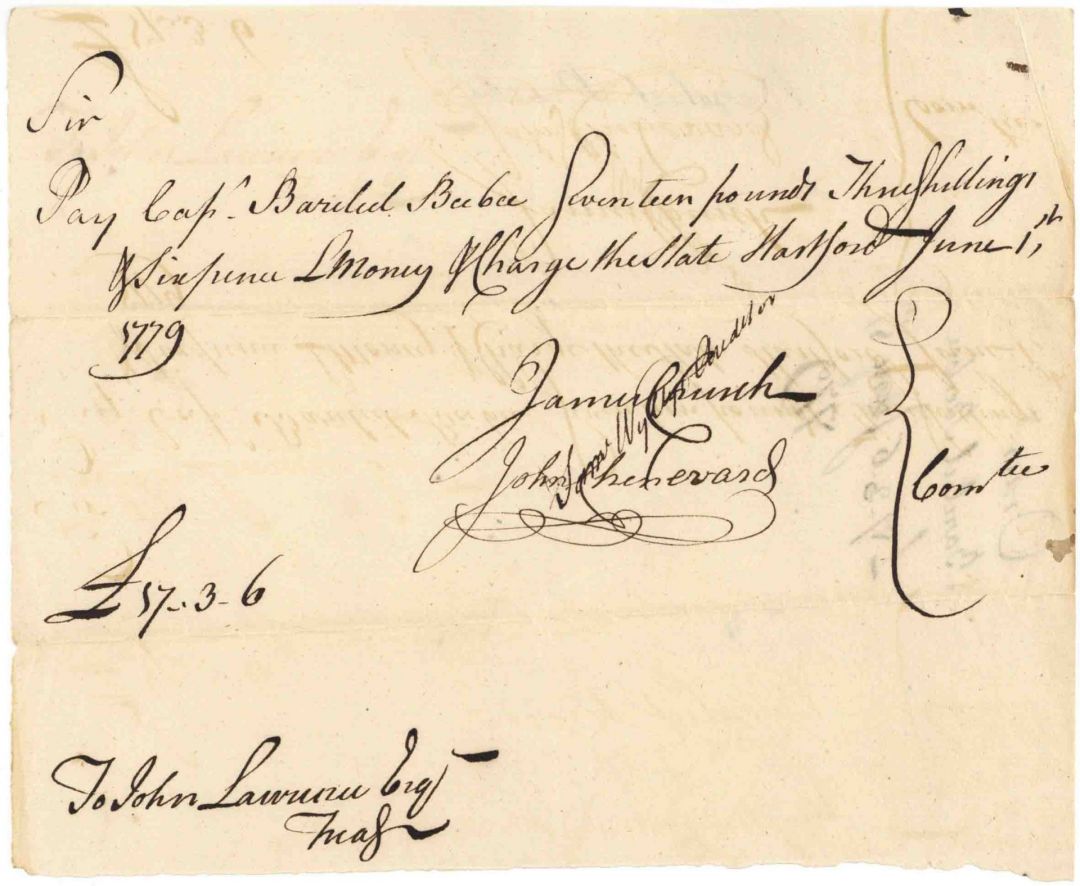 Sir
Pay Capt. Bazeleel Beebee Seventeen pounds Three Shillings
& Sixpence LMoney & Charge the State Hartford June 1st,
1779
James Church
Saml Wyllys Auditor
John Chenevard
Comtee
£17..3-6
To John Lawrence Esqr
Treasr